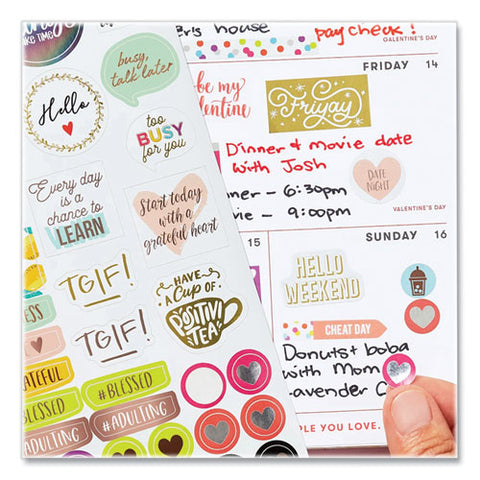 TAKE TIME
busy,
talk later
Hello
too
BUSY
for you
Every day
is a
chance to
LEARN
Start today
with a
grateful heart
TGIF!
TGIF!
HAVE
A CUP OF
POSITIVI
TEA
#BLESSED
#BLESSED
#ADULTING
#ADULTING
house
pay check!
GALENTINE'S DAY
FRIDAY 14
be my
Friyay
Dinner & movie date
with Josh
- 6:30pm
- 9:00pm
DATE
NIGHT
VALENTINE'S DAY
15
SUNDAY 16
HELLO
WEEKEND
CHEAT DAY
Donuts + boba
with Mom
YOU LOVE.